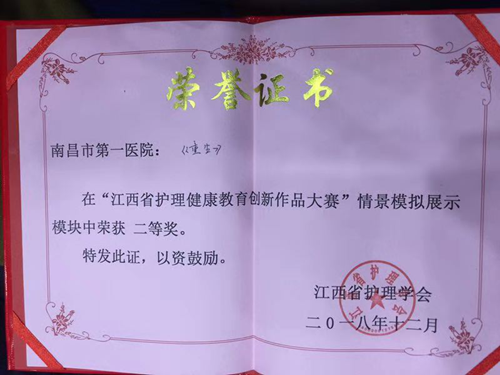 荣誉证书
南昌市第一医院：《重生》
在“江西省护理健康教育创新作品大赛”情景模拟展示
模块中荣获 二等奖。
特发此证，以资鼓励。
江西省护理学会
二0一八年十二月